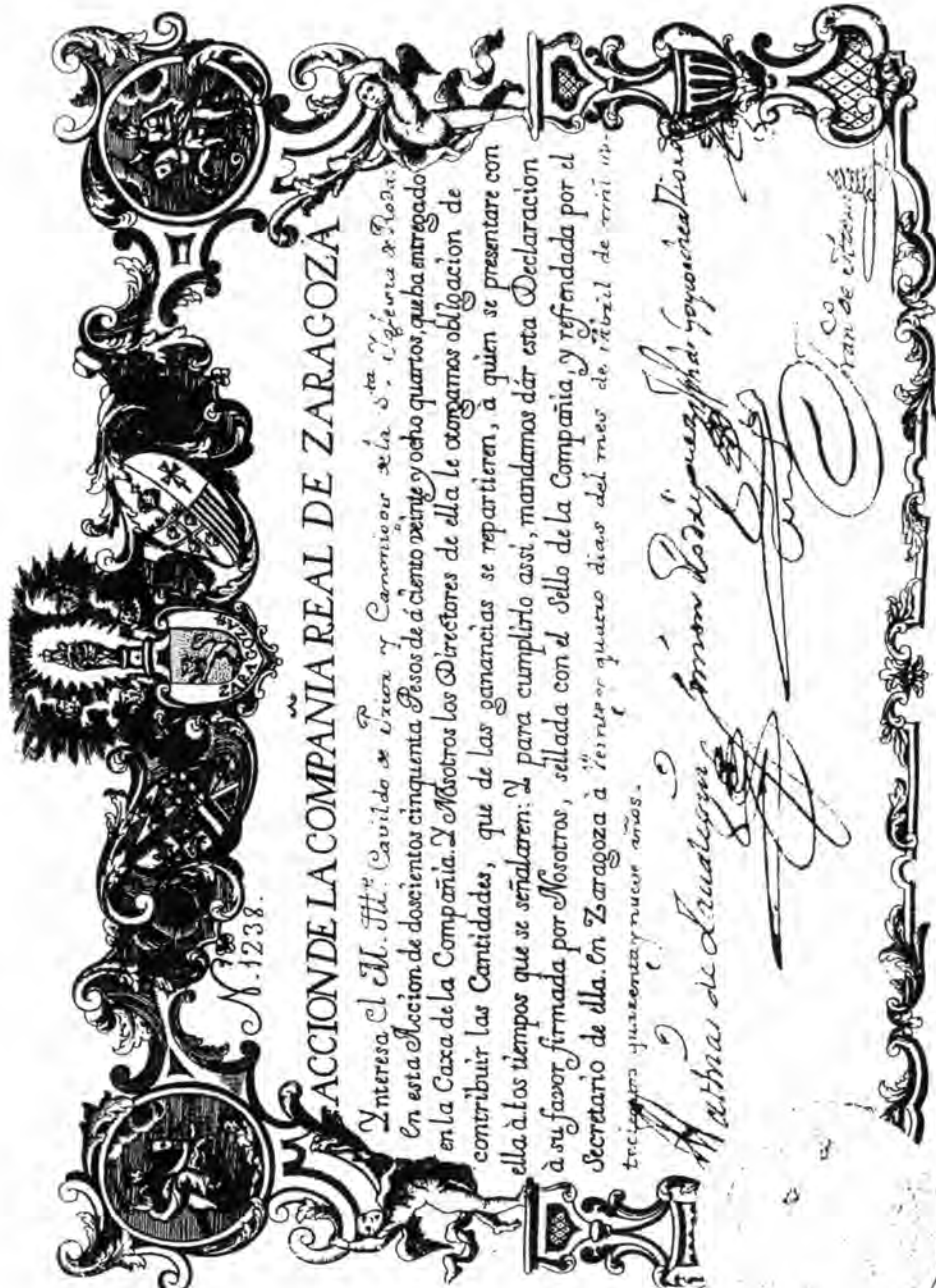 ZARAGOZA
N. 1238.
ACCION DE LA COMPAÑIA REAL DE ZARAGOZA
Ynteresa El M. Ille. Cavildo de Prior y Canonigos de la Sta. Iglesia de Roda:
En esta Accion de doscientos cinquenta Pesos de á ciento veinte y ocho quartos, que ha entregado
en la Caxa de la Compañia. Y Nosotros los Directores de ella le otorgamos obligacion de
contribuir las Cantidades, que de las ganancias se repartieren, à quien se presentare con
ella à los tiempos que se señalaren: Y para cumplirlo assi, mandamos dár esta Declaracion
à su favor firmada por Nosotros, sellada con el Sello de la Compañia, y refrendada por el
Secretario de ella. en Zaragoza à veinte y quatro dias del mes de Abril de mil
quarenta y nueve años.
Mathias de
Simon Rodriguez
Franco de